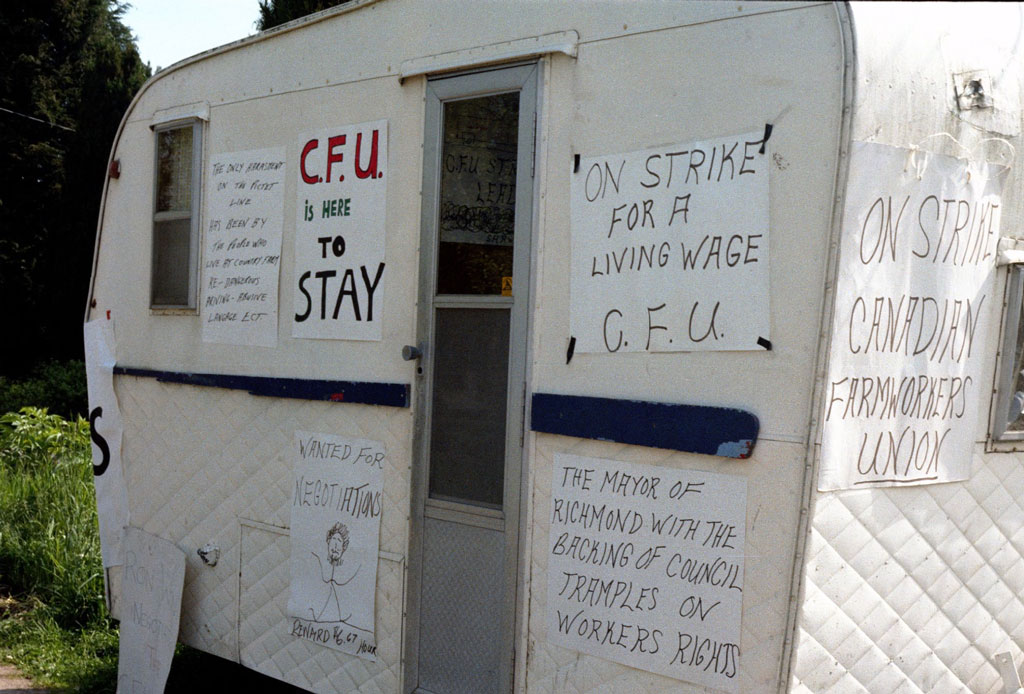 THE ONLY HARASSMENT
ON THE PICKET
LINE
HAS BEEN BY
THE PEOPLE WHO
LIVE BY COUNTRY FARM
RE-DANGEROUS
DRIVING-ABUSIVE
LANGAGE ECT
C.F.U.
iS HERE
TO
STAY
C.F.U STR
LEFT
ON STRIKE
FOR A
LIVING WAGE
C. F. U.
ON STRIKE
CANADIAN
FARMWORKERS
UNION
S
WANTED FOR
NEGOTIATIONS
REWARD $6.67
HOUR
THE MAYOR OF
RICHMOND WITH THE
BACKING OF COUNCIL
TRAMPLES ON
WORKERS RIGHTS
RON
NEGOT